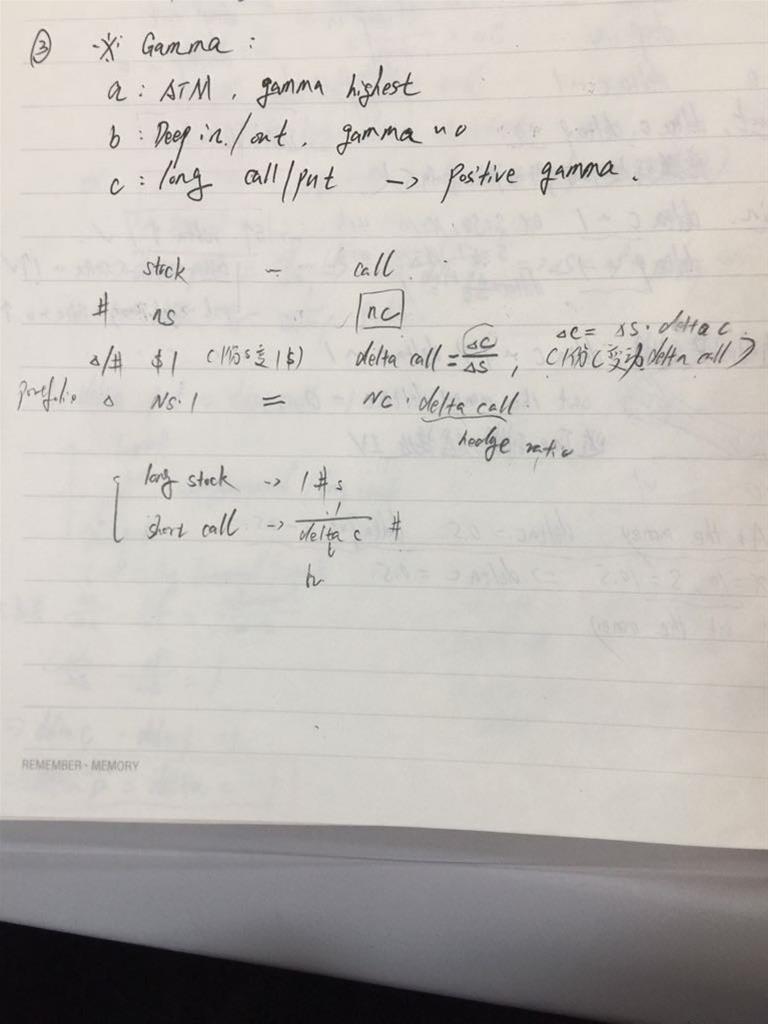 ③ ※ Gamma :
a : ATM , gamma highest
b : Deep in/out , gamma no
c : long call/put → positive gamma .
stock — call
# ns nc
Δc = Δs · delta c
Δ/# $1 (1份s变1$) delta call = Δc/Δs , (1份c变动delta call)
portfolio Δ Ns·1 = Nc · delta call
hedge ratio
long stock → 1 # s
short call → 1/delta c #
h
REMEMBER - MEMORY